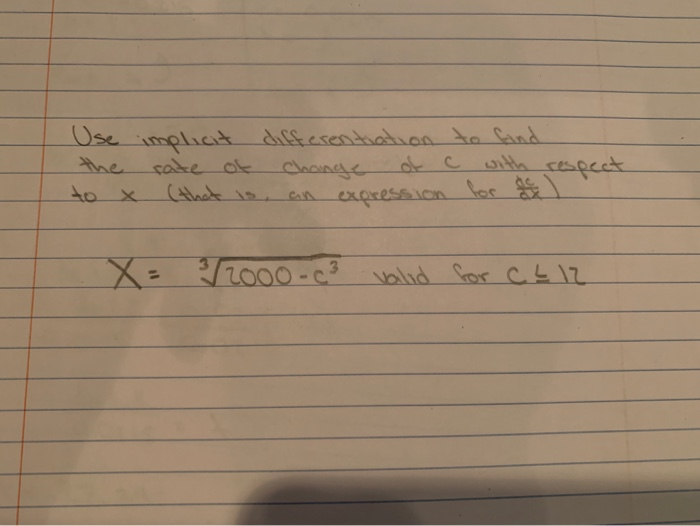 Use implicit differentiation to find
the rate of change of c with respect
to x (that is, an expression for dc/dx)
X = ∛2000-c³ valid for C ≤ 12